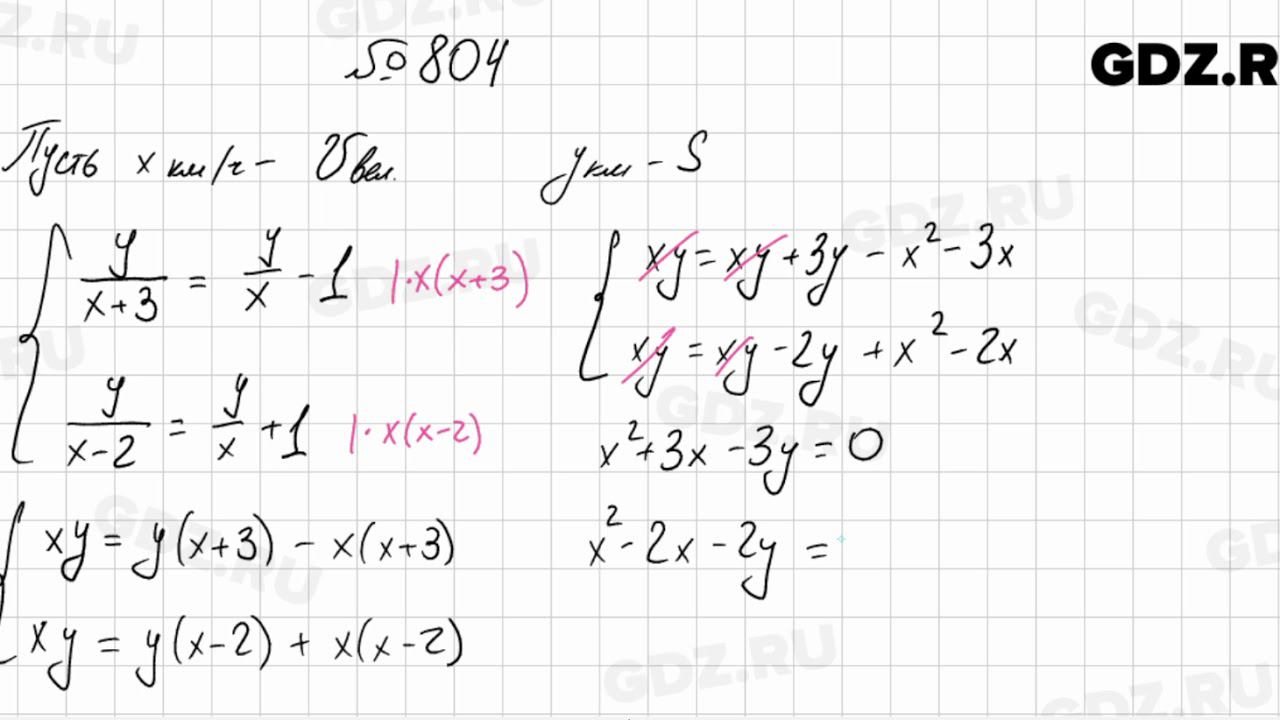 №804
GDZ.R
Пусть x км/ч - υ вел. y км - S
y/(x+3) = y/x - 1 |·x(x+3)
y/(x-2) = y/x + 1 |·x(x-2)
xy = y(x+3) - x(x+3)
xy = y(x-2) + x(x-2)
xy = xy + 3y - x² - 3x
xy = xy - 2y + x² - 2x
x² + 3x - 3y = 0
x² - 2x - 2y =